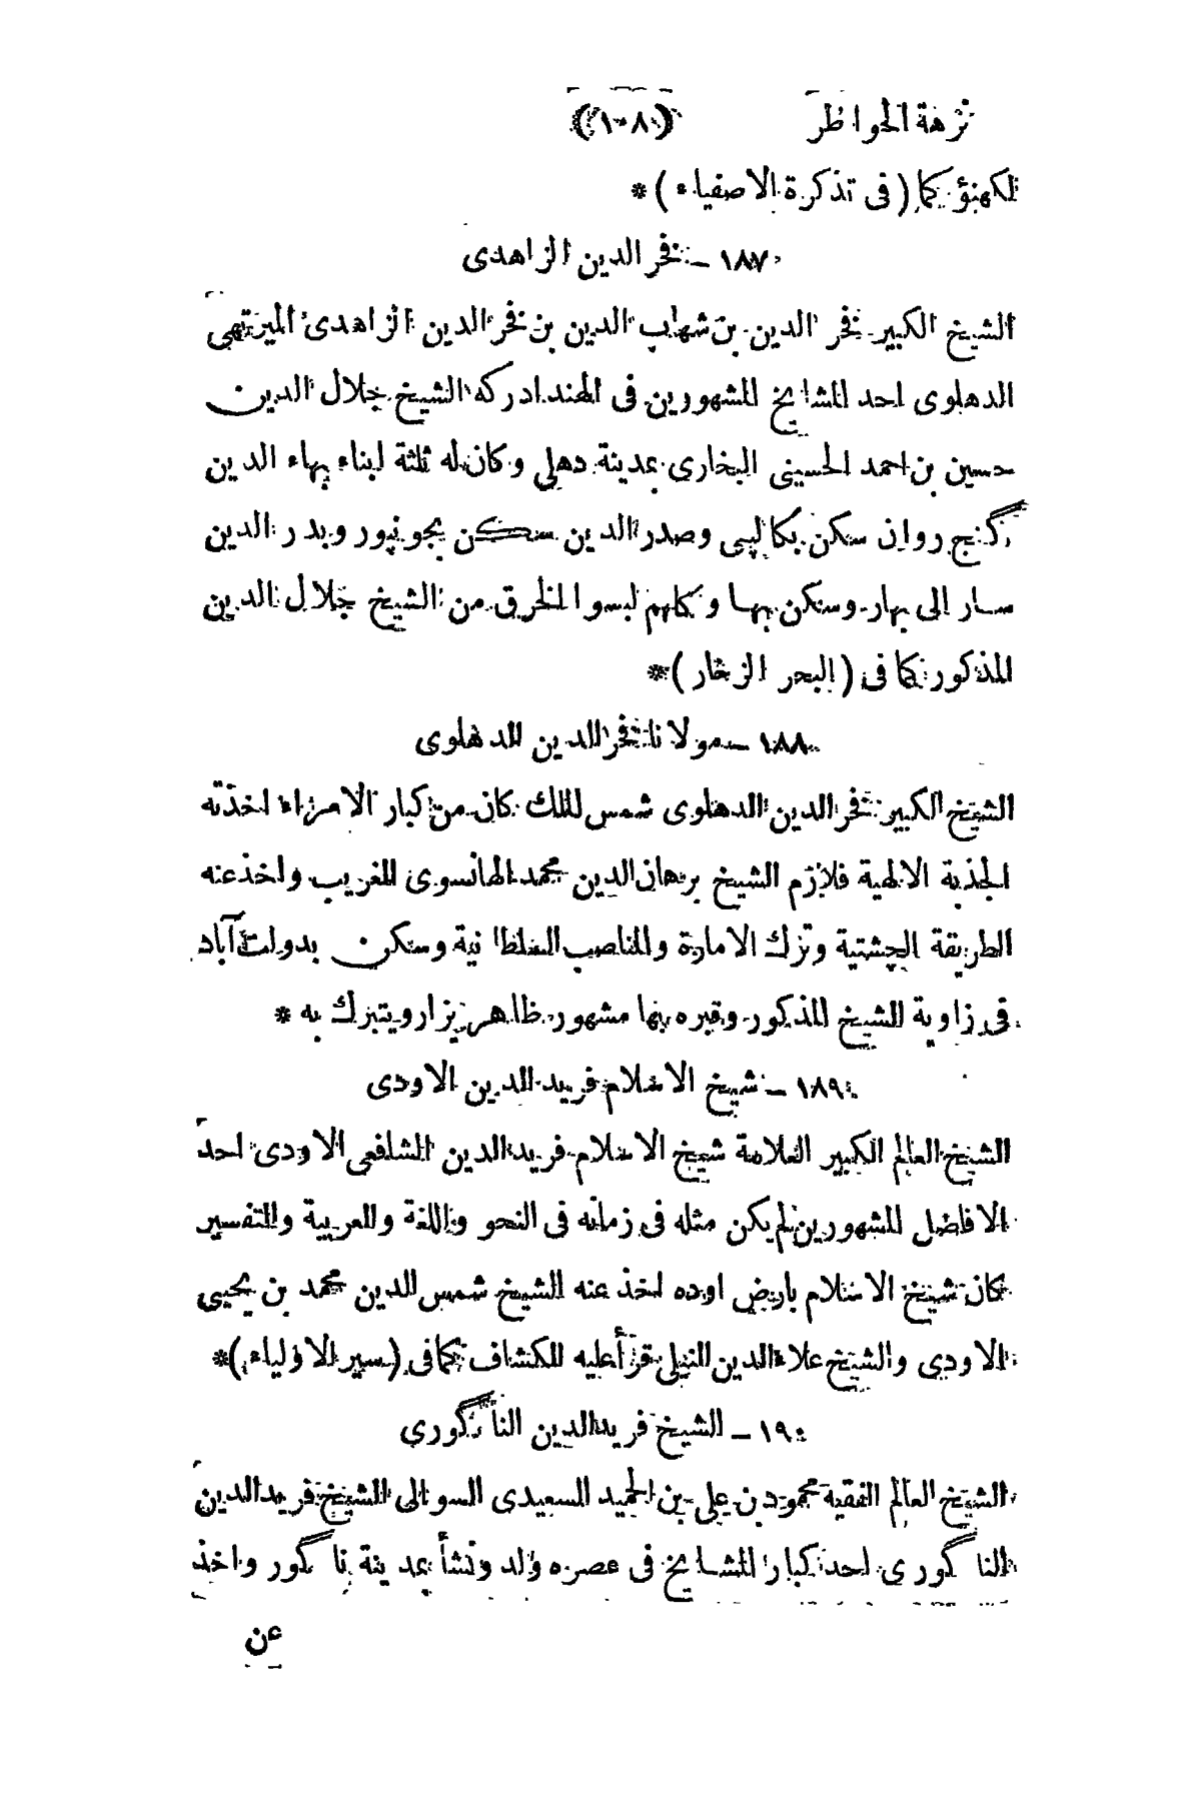 نزهة الخواطر (١٠٨)
لكهنؤ كما (فى تذكرة الاصفياء) *
١٨٧ – فخر الدين الزاهدى
الشيخ الكبير فخر الدين بن شهاب الدين بن فخر الدين الزاهدى الميرتهى
الدهلوى احد المشايخ المشهورين فى الهند ادركه الشيخ جلال الدين
حسين بن احمد الحسينى البخارى بمدينة دهلى و كان له ثلثة ابناء بهاء الدين
گنج روان سكن بكالپى وصدر الدين سكن بجونپور وبدر الدين
سار الى بهار وسكن بها و كلهم لبسوا الخرق من الشيخ جلال الدين
المذكور كما فى (البحر الزخار) *
١٨٨ – مولانا فخر الدين الدهلوى
الشيخ الكبير فخر الدين الدهلوى شمس الملك كان من كبار الامراء اخذته
الجذبة الالهية فلازم الشيخ برهان الدين محمد الهانسوى الغريب واخذ عنه
الطريقة الچشتية وترك الامارة والمناصب السلطانية وسكن بدولت آباد
فى زاوية الشيخ المذكور وقبره بها مشهور ظاهر يزار ويتبرك به *
١٨٩ – شيخ الاسلام فريد الدين الاودى
الشيخ العالم الكبير العلامة شيخ الاسلام فريد الدين الشافعى الاودى احد
الافاضل المشهورين لم يكن مثله فى زمانه فى النحو واللغة والعربية والتفسير
كان شيخ الاسلام بارض اوده اخذ عنه الشيخ شمس الدين محمد بن يحيى
الاودى والشيخ علاء الدين النيلى قرأ عليه الكشاف كما فى (سير الاولياء) *
١٩٠ – الشيخ فريد الدين الناگورى
الشيخ العالم الفقيه محمود بن على بن الحميد السعيدى السوالى الشيخ فريد الدين
الناگورى احد كبار المشايخ فى عصره ولد ونشأ بمدينة ناگور واخذ
عن